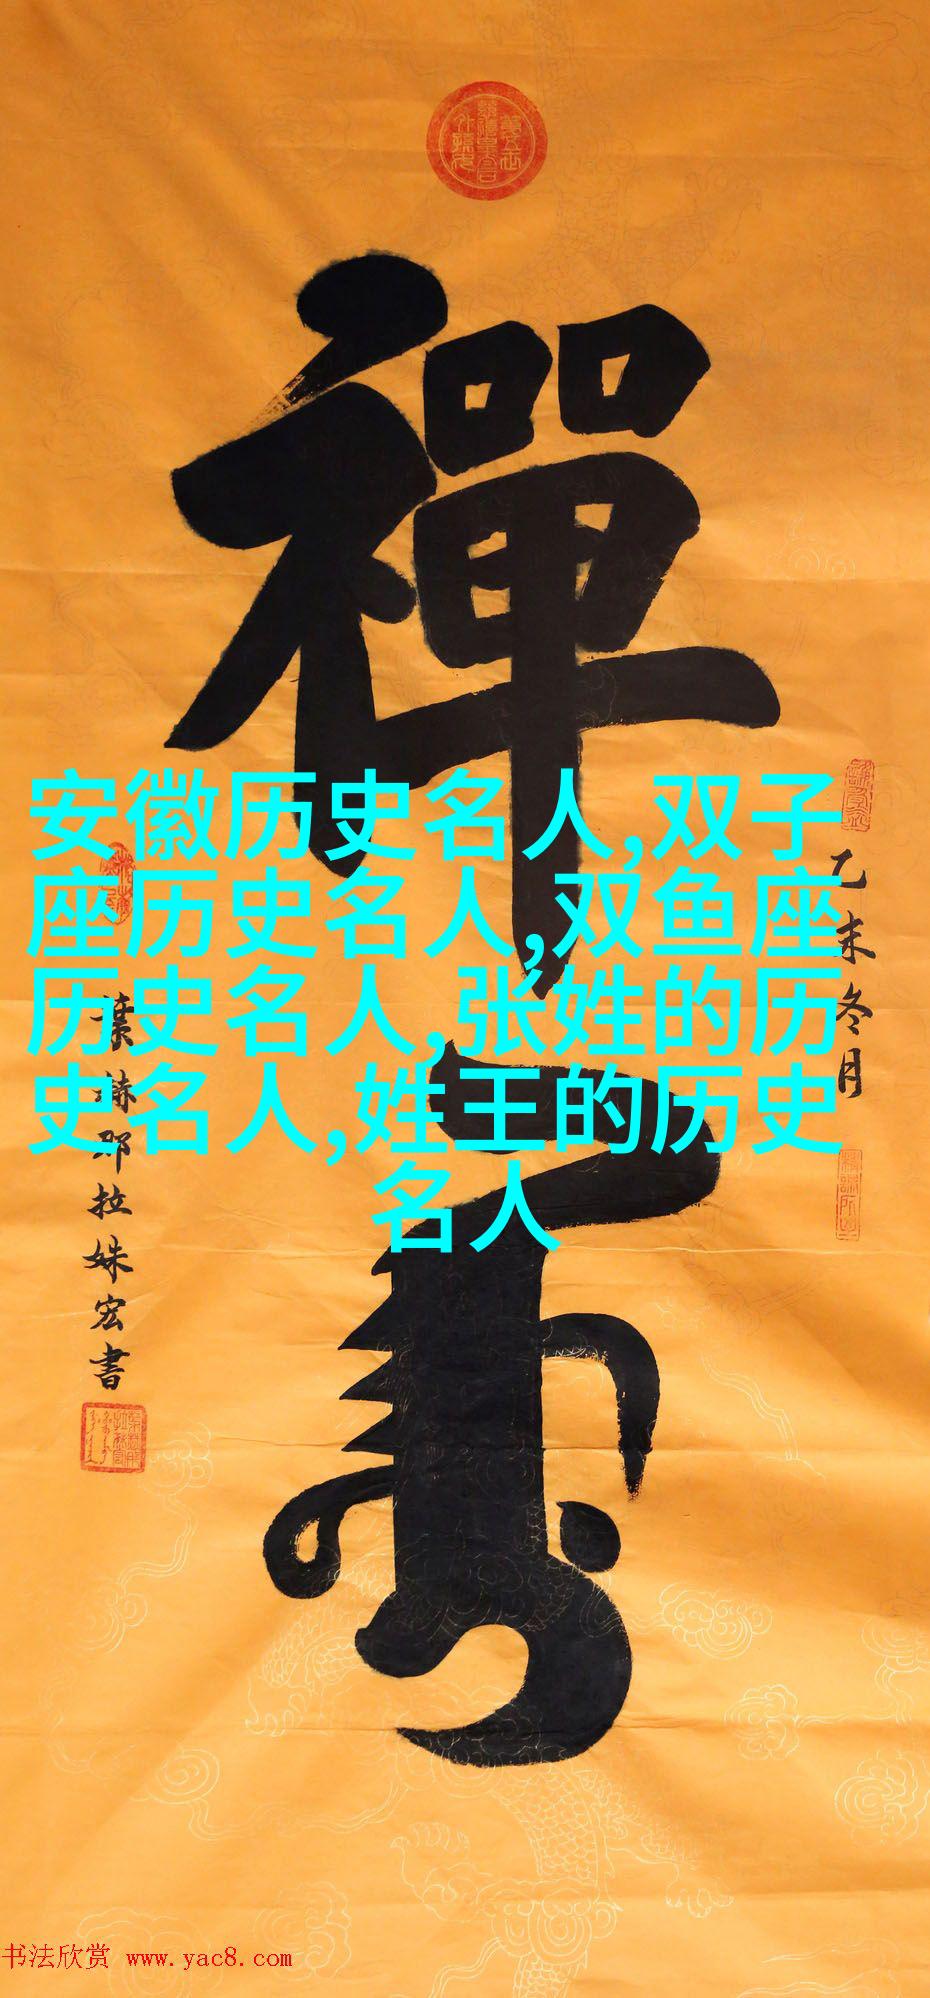 禪
安徽历史名人,双子
座历史名人,双鱼座
历史名人,张姓的历
史名人,姓王的历史
名人
乙未冬月
葉赫那拉姝宏書
书法欣赏 www.yac8.com